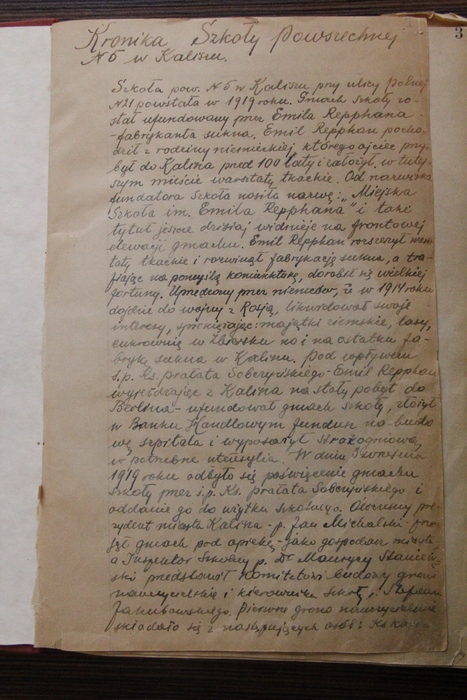 Kronika Szkoły Powszechnej
N6 w Kaliszu.
Szkoła pow. N6 w Kaliszu przy ulicy Polnej
N21 powstała w 1919 roku. Gmach szkoły zo-
stał ufundowany przez Emila Repphana
- fabrykanta sukna. Emil Repphan pocho-
dził z rodziny niemieckiej którego ojciec przy-
był do Kalisza przed 100 laty i założył w tutej-
szym mieście warsztaty tkackie. Od nazwiska
fundatora szkoła nosiła nazwę: "Miejska
Szkoła im. Emila Repphana" i taki
tytuł jeszcze dzisiaj widnieje na frontowej
elewacji gmachu. Emil Repphan rozszerzył warsz-
taty tkackie i rozwinął fabrykację sukna, a tra-
fiając na pomyślną koniunkturę, dorobił się wielkiej
fortuny. Uprzedzony przez niemców, iż w 1914 roku
dojdzie do wojny z Rosją, likwidował swoje
interesy, sprzedając: majątki ziemskie, lasy,
cukrownię w Zbiersku no i na ostatku fa-
brykę sukna w Kaliszu. Pod wpływem
ś.p. ks. prałata Sobczyńskiego - Emil Repphan
wyjeżdżając z Kalisza na stały pobyt do
Berlina - ufundował gmach szkoły, złożył
w Banku Handlowym fundusz na budo-
wę szpitala i wyposażył straż ogniową
w potrzebne utensylia. W dniu września
1919 roku odbyło się poświęcenie gmachu
szkoły przez ś.p. Ks. prałata Sobczyńskiego i
oddanie go do użytku szkolnego. Ówczesny pre-
zydent miasta Kalisza - p. Jan Michalski
gmach pod opiekę - jako gospodarz miasta
a Inspektor Szkolny p. Dr Maurycy
ski przedstawił Komitetowi budowy grono
nauczycielskie i kierownika szkoły p. Stefana
Jakubowskiego. Pierwsze grono nauczycielskie
składało się z następujących osób: